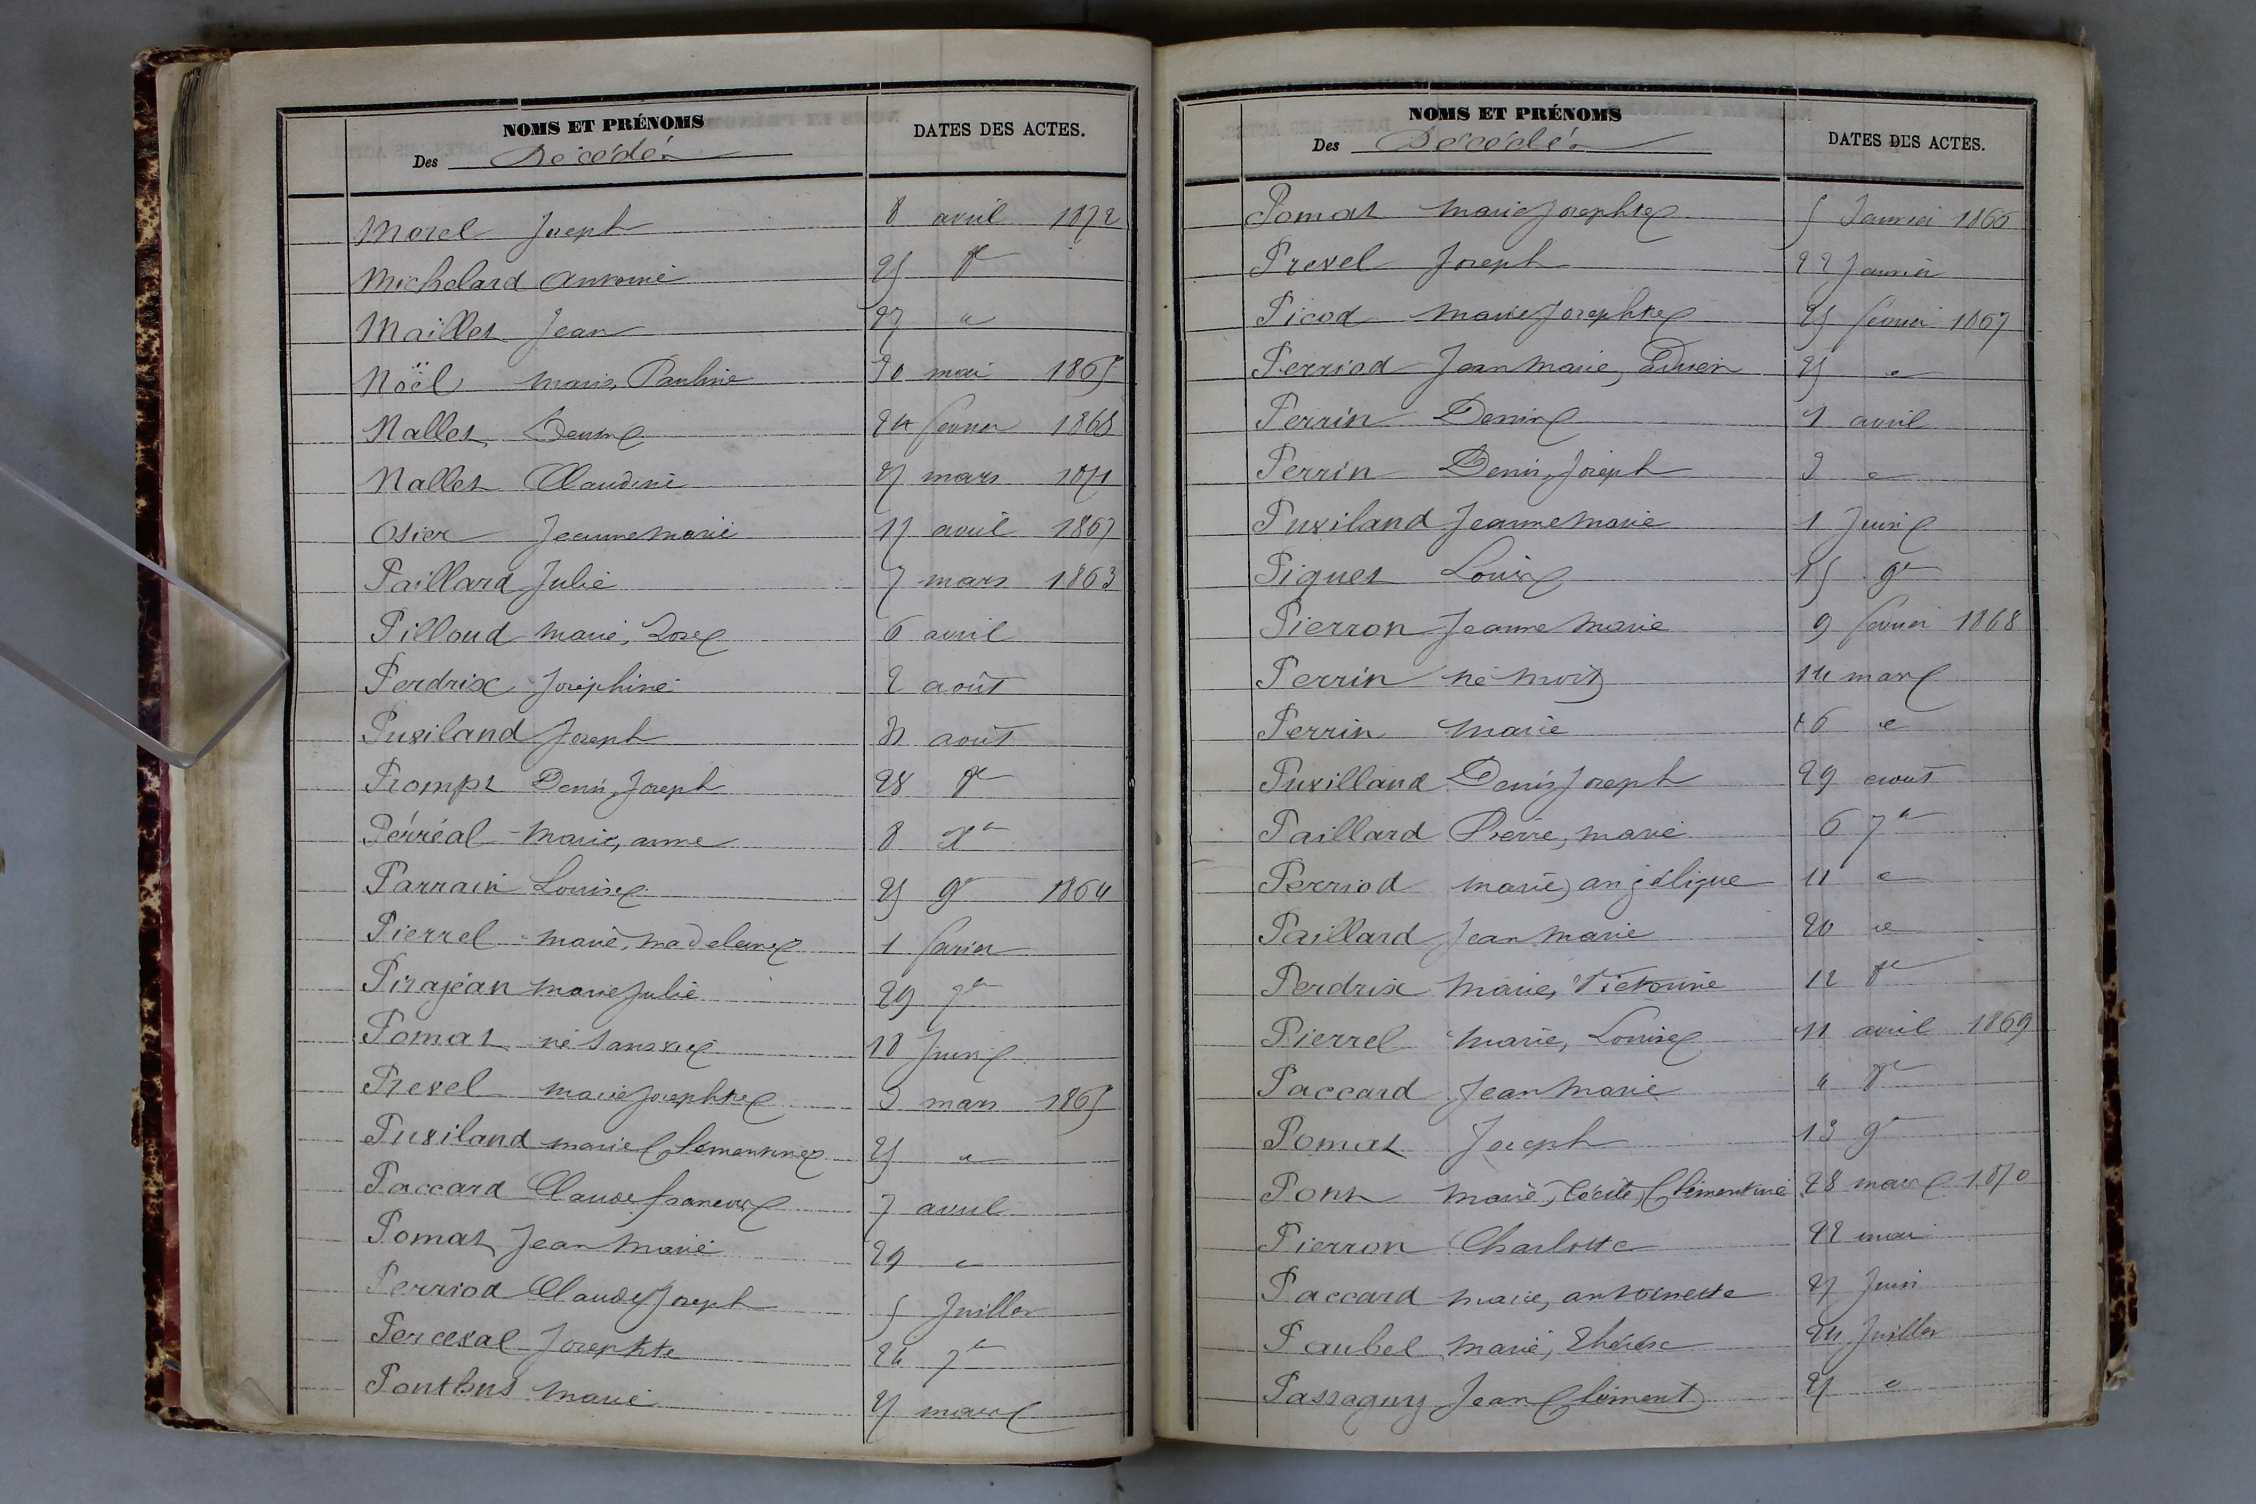 NOMS ET PRÉNOMS
DATES DES ACTES.
Des Décédés
Morel Joseph 8 avril 1872
Michelard Antoine 25 8e
Maillet Jean 27 "
Noël marie, Pauline 30 mai 1865
Nallet Denise 24 fevrier 1868
Nallet Claudine 27 mars 1871
Osier Jeanne marie 17 avril 1867
Paillard Julie 7 mars 1863
Pilloud marie, Rose 6 avril
Perdrix Joséphine 2 août
Puviland Joseph 31 août
Prompt Denis, Joseph 28 8e
Pérréal marie, anne 8 Xe
Parrain Louise 25 9e 1864
Pierrel marie, madeleine 1 fevrier
Pirajéan marie Julie 29 7e
Pomat né sans vie 18 Juin
Prevel marie Josephte 3 mars 1865
Puviland marie Clementine 25 "
Paccard Claude francois 7 avril
Pomat Jean marie 29 "
Perriod Claude Joseph 5 Juillet
Perceval Josephte 24 7e
Ponthus marie 27 mars
NOMS ET PRÉNOMS
DATES DES ACTES.
Des Décédés
Pomat marie Josephte 5 Janvier 1866
Prevel Joseph 22 Janvier
Picod marie Josephte 25 fevrier 1867
Perriod Jean marie, 25 "
Perrin Denise 1 avril
Perrin Denis, Joseph 3 "
Puviland Jeanne marie 1 Juin
Piquet Louise 15 9e
Pierron Jeanne marie 9 fevrier 1868
Perrin né mort 14 mars
Perrin marie 16 "
Puvilland Denis Joseph 29 aout
Paillard Pierre, marie 6 7e
Perriod marie, angélique 11 "
Paillard Jean marie 20 "
Perdrix marie, Victorine 12 8e
Pierrel marie, Louise 11 avril 1869
Paccard Jean marie 4 8e
Pomat Joseph 13 9e
Pont marie, Cécile, Clémentine 28 mars 1870
Pierron Charlotte 22 mai
Paccard marie, antoinette 27 Juin
Paubel marie, Thérèse 24 Juillet
Passaguy Jean Clément 27 "